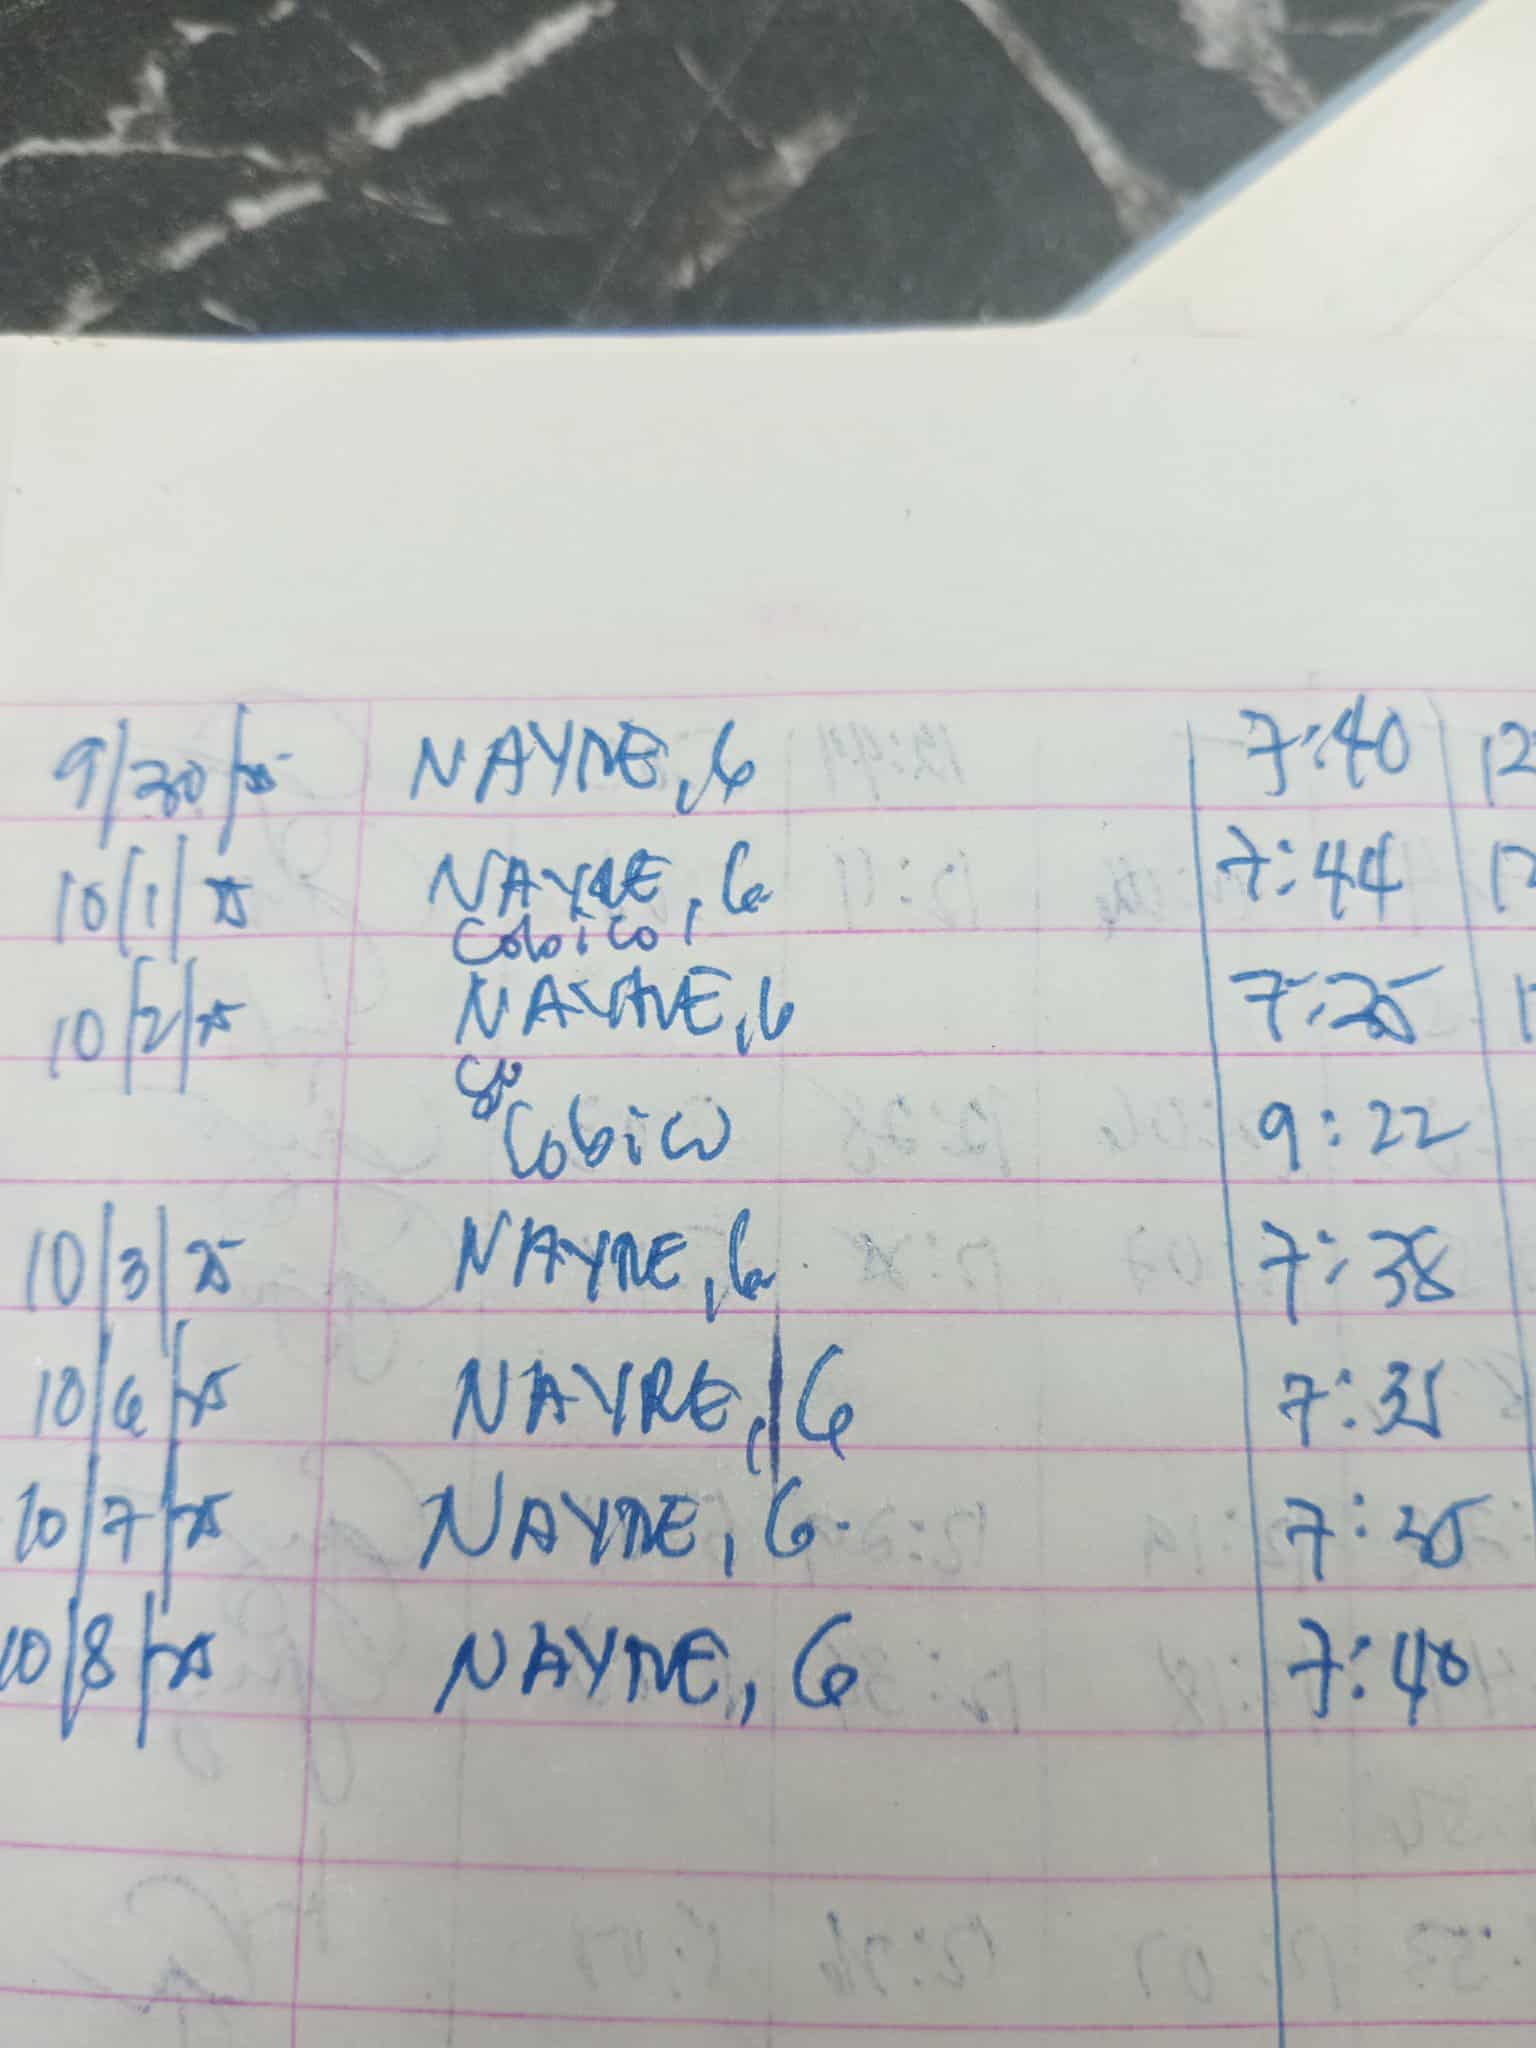 9/30/25 NAYRE, G 7:40 12
10/1/25 NAYRE, G 7:44 12
Cobico,
10/2/25 NAYRE, G 7:25 1
Co
Cobico 9:22
10/3/25 NAYRE, G 7:38
10/6/25 NAYRE, G 7:35
10/7/25 NAYRE, G. 7:35
10/8/25 NAYRE, G 7:40